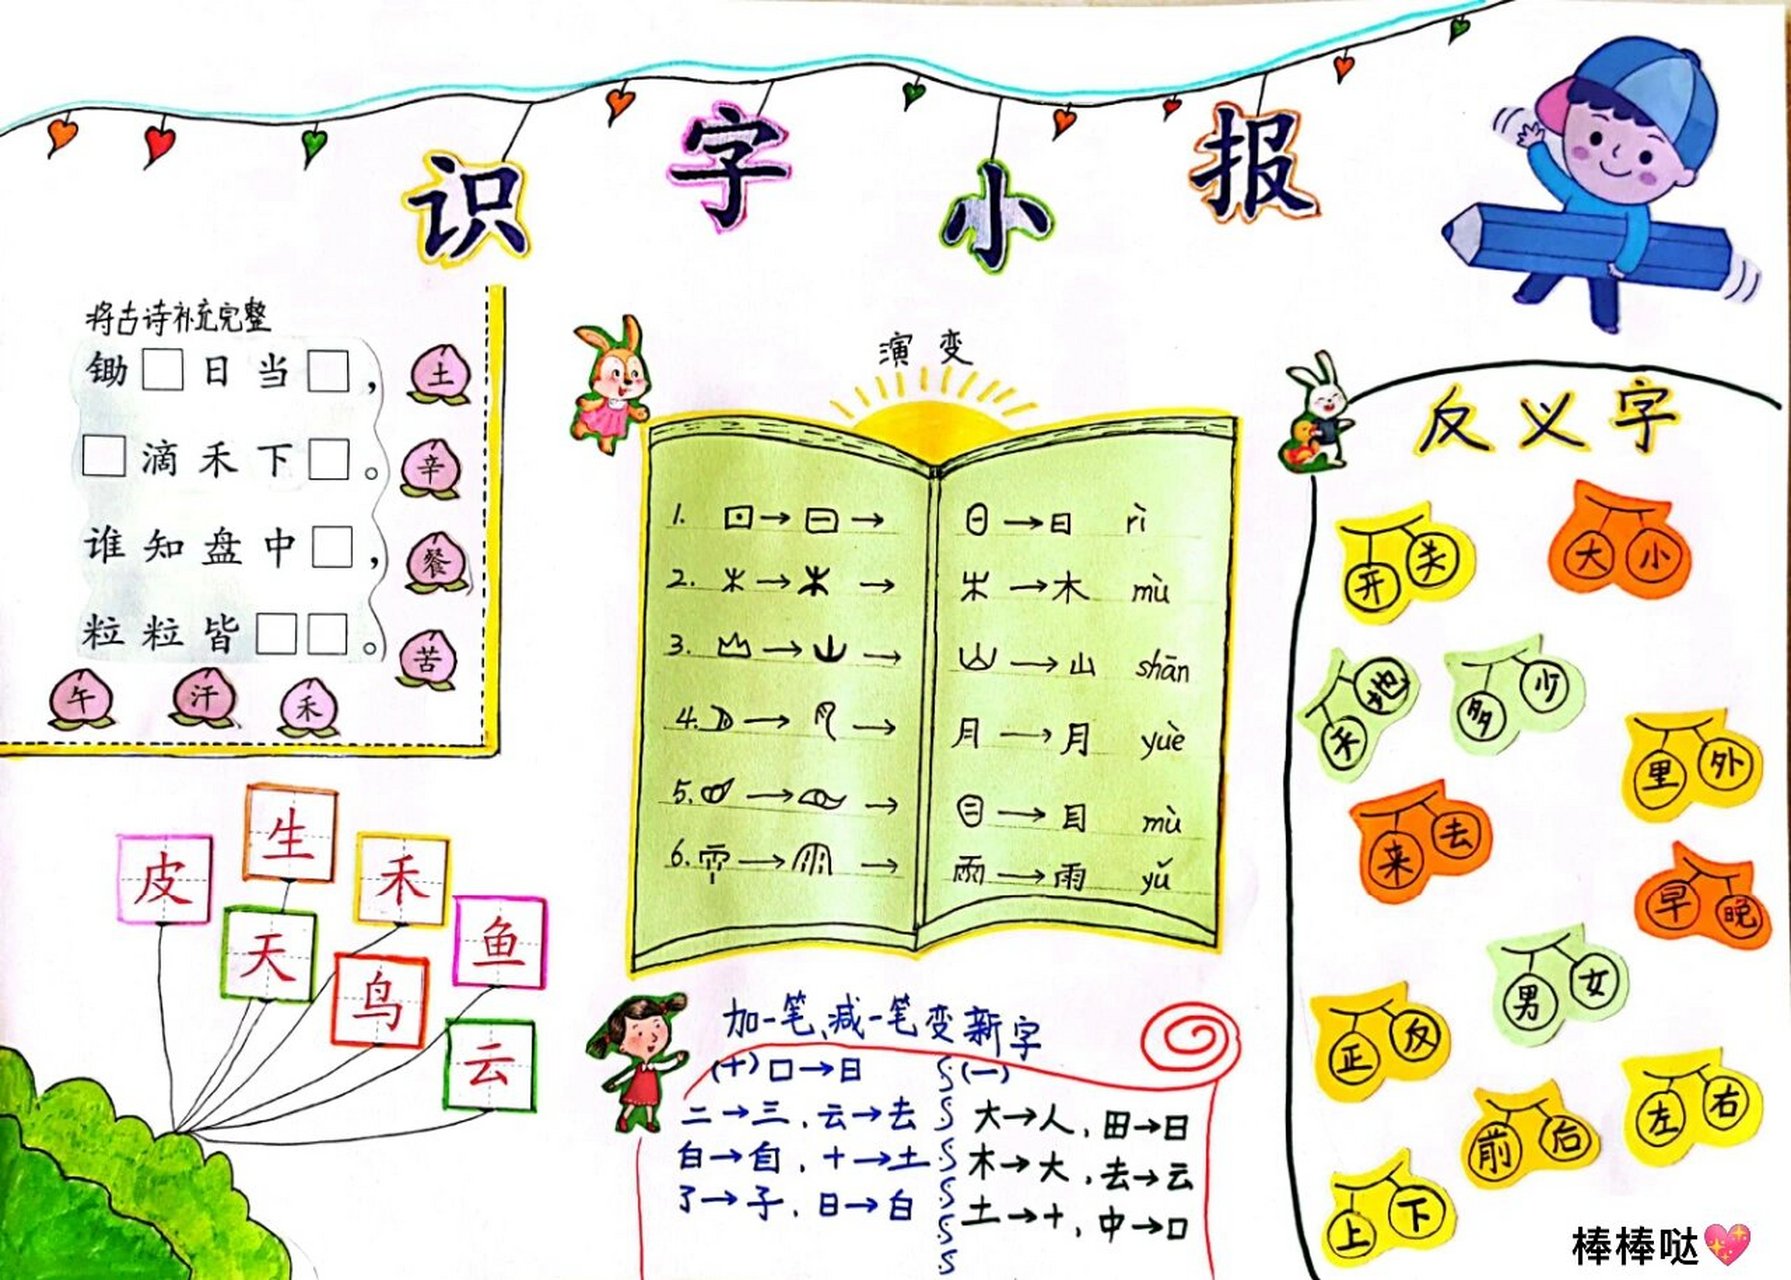 识字小报
将古诗补充完整
锄□日当□，
□滴禾下□。
谁知盘中□，
粒粒皆□□。
土
辛
餐
苦
午 汗 禾
皮 生 禾 鱼
天 鸟 云
演变
1. → → → 日 rì
2. → → → 木 mù
3. → → → 山 shān
4. → → 月 → 月 yuè
5. → → → 目 mù
6. → → → 雨 yǔ
加一笔、减一笔变新字
(十) 口→日
二→三，云→去
白→自，十→土
了→子，日→白
(一)
大→人，田→日
木→大，去→云
土→十，中→口
反义字
开 关
大 小
天 地
多 少
里 外
来 去
早 晚
男 女
正 反
前 后
左 右
上 下
棒棒哒